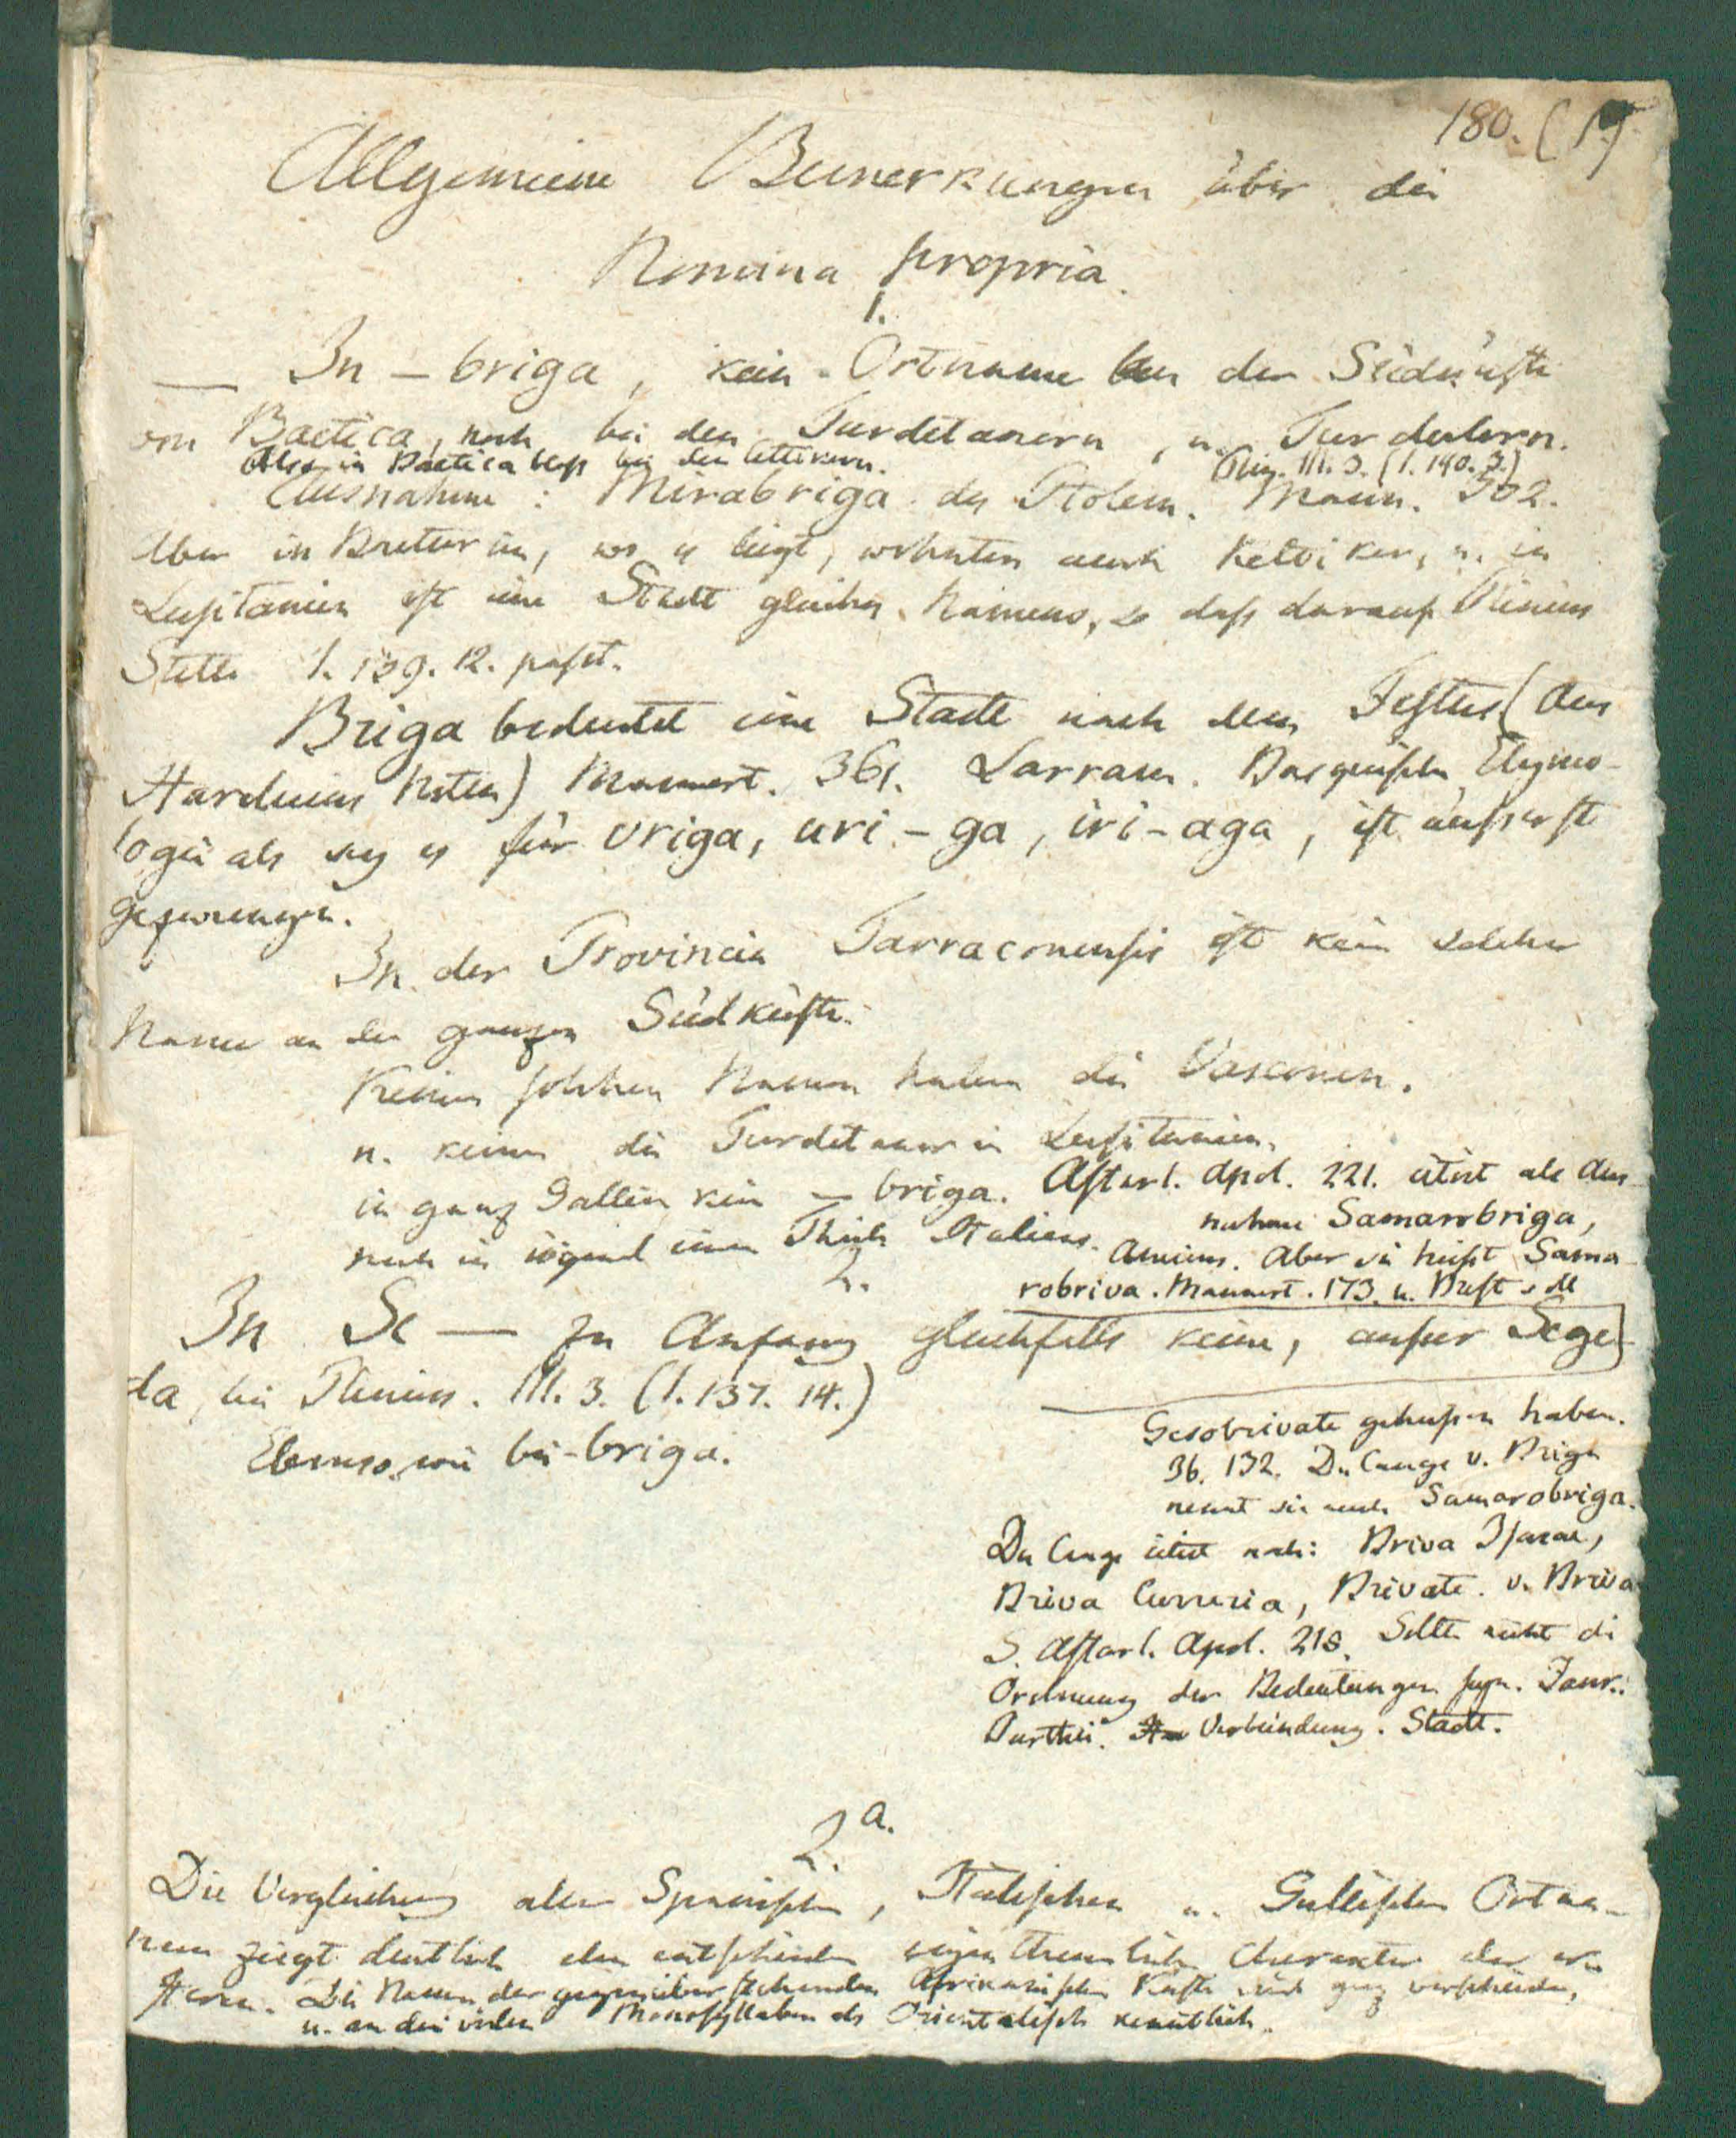 180. (1.)
Allgemeine Bemerkungen über die
Nomina propria.
1.
In – briga, kein Ortname an der Südküste
von Baetica, noch bei den Turdetanern, u. Turdulern.
Also in Baetica bloß bei den Celtikern. Plin. III. 3. (1. 140. 3.)
Ausnahme: Mirabriga des Ptolem. Mann. 302.
Aber in Baeturien, wo es liegt, wohnten auch Keltiker, u. in
Lusitanien ist eine Stadt gleiches Namens, so daß darauf Plinius
Stelle 1. 139. 12. paßt.
Briga bedeutet eine Stadt nach dem Festus (aus
Harduins Noten) Mannert. 361. Larram. Basquische Etymo-
logie als sey es für vriga, uri-ga, iri-aga, ist äußerst
gezwungen.
In der Provincia Tarraconensis ist kein solcher
Name an der ganzen Südküste.
Keinen solchen Namen haben die Vasconen.
u. keinen die Turdetaner in Lusitanien.
in ganz Gallien kein – briga.
noch in irgend einem Theile Italiens.
Astarl. Apol. 221. citirt als Aus-
nahme Samarobriga,
Amiens. Aber sie heißt Sama-
robriva. Mannert. 173. u. Brest soll
Gesobrivate geheißen haben.
36. 132. Du Cange v. Briga
nennt sie auch Samarobriga.
Du Cange citirt noch: Briva Isarae,
Briva Curretia, Brivate. v. Briva
S. Astarl. Apol. 218. Sollte nicht die
Ordnung der Bedeutungen seyn. Fam.:
Parthei. Verbindung. Stadt.
2.
In Se — zu Anfang gleichfalls keine, außer Sege-
da, bei Plinius. III. 3. (1. 137. 14.)
Ebenso wie bei -briga.
2a.
Die Vergleichung aller Spanischen, Italischen u. Gallischen Ortna-
men zeigt deutlich den entschieden eigenthümlichen Charakter der
steren. Die Namen der gegenüberstehenden Afrikanischen Küste sind ganz verschieden,
u. an den vielen Monosyllaben als Orientalisch kenntlich.